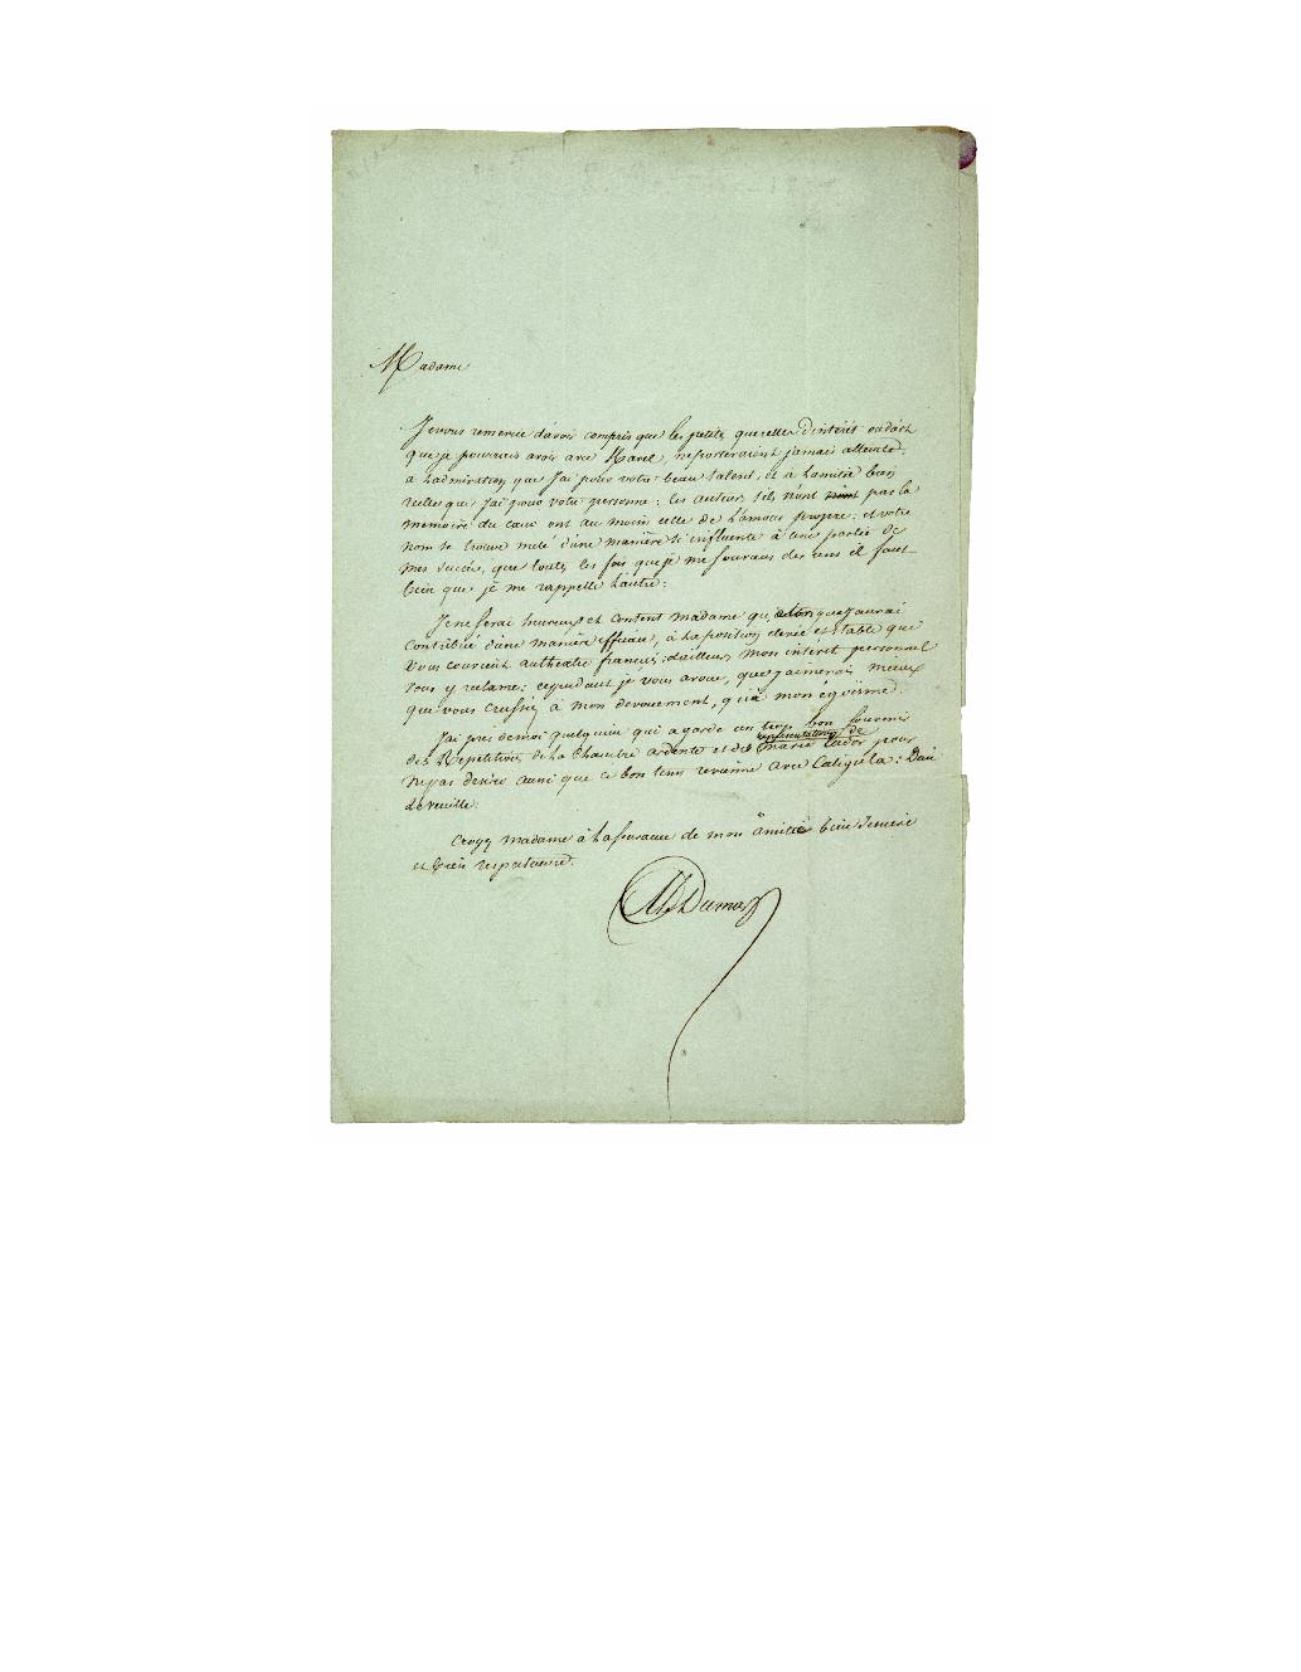 Madame
Je vous remercie d'avoir compris que les petites querelles d'intérêt ou d'art
que je pourrais avoir avec Harel, ne porteraient jamais atteinte
a l'admiration que J'ai pour votre beau talent, et a l'amitié bien
réelle que J'ai pour votre personne: les auteurs s'ils n'ont pas la
memoire du cœur ont au moins celle de l'amour propre: et votre
nom se trouve melé d'une manière si influente à une partie de
mes succès, que toutes les fois que je me souviens des uns il faut
bien que je me rappelle l'autre:
Je ne serai heureux et content madame qu' que j'aurai
contribué d'une manière efficace, à la position élevée et stable que
vous convient au théatre français: d'ailleurs mon intérêt personnel
vous y reclame: cependant je vous avoue, que j'aimerais mieux
que vous crussiez à mon devouement, qu'à mon égoïsme.
J'ai près de moi quelqu'un qui a gardé un trop bon souvenir
des Repetitions de la Chambre ardente et des representations de marie tudor pour
ne pas desirer aussi que ce bon tems revienne avec Caligula: Dieu
le veuille.
Croyez madame à l'assurance de mon amitié bien sincère
et bien respectueuse.
Al Dumas